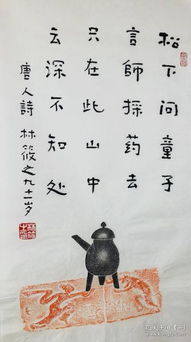 松下问童子
言師採药去
只在此山中
云深不知处
唐人詩 林筱之九十一岁